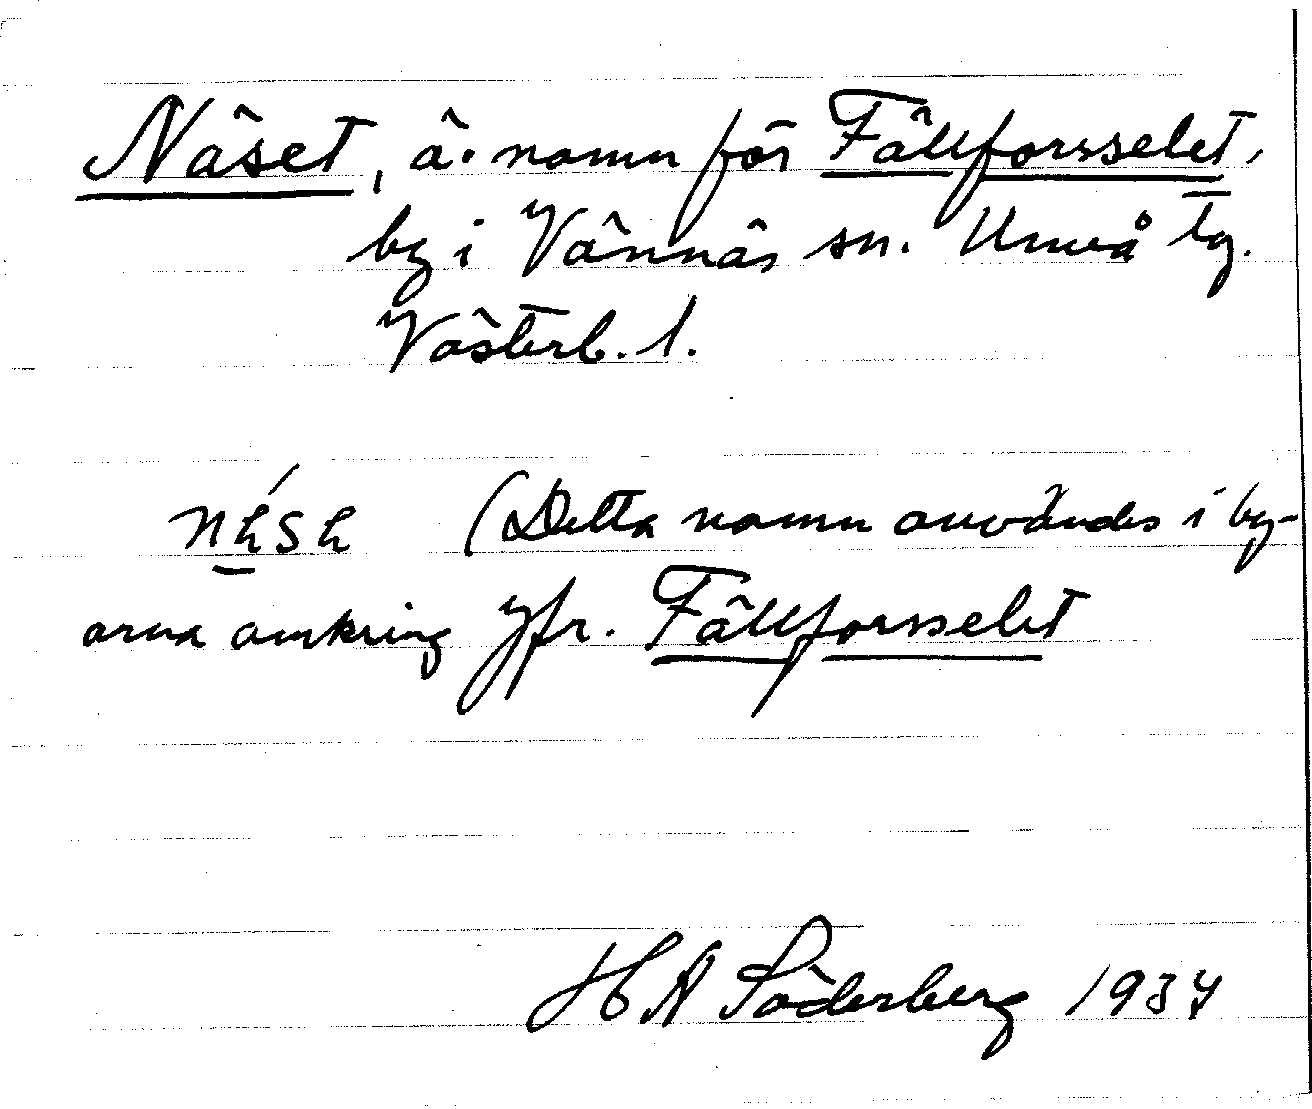 Näset, ä. namn för Fällforsselet,
by i Vännäs sn. Umeå tg.
Västerb. l.
(Detta namn användes i by-
arna omkring jfr. Fällforsselet
H A Söderberg 1934